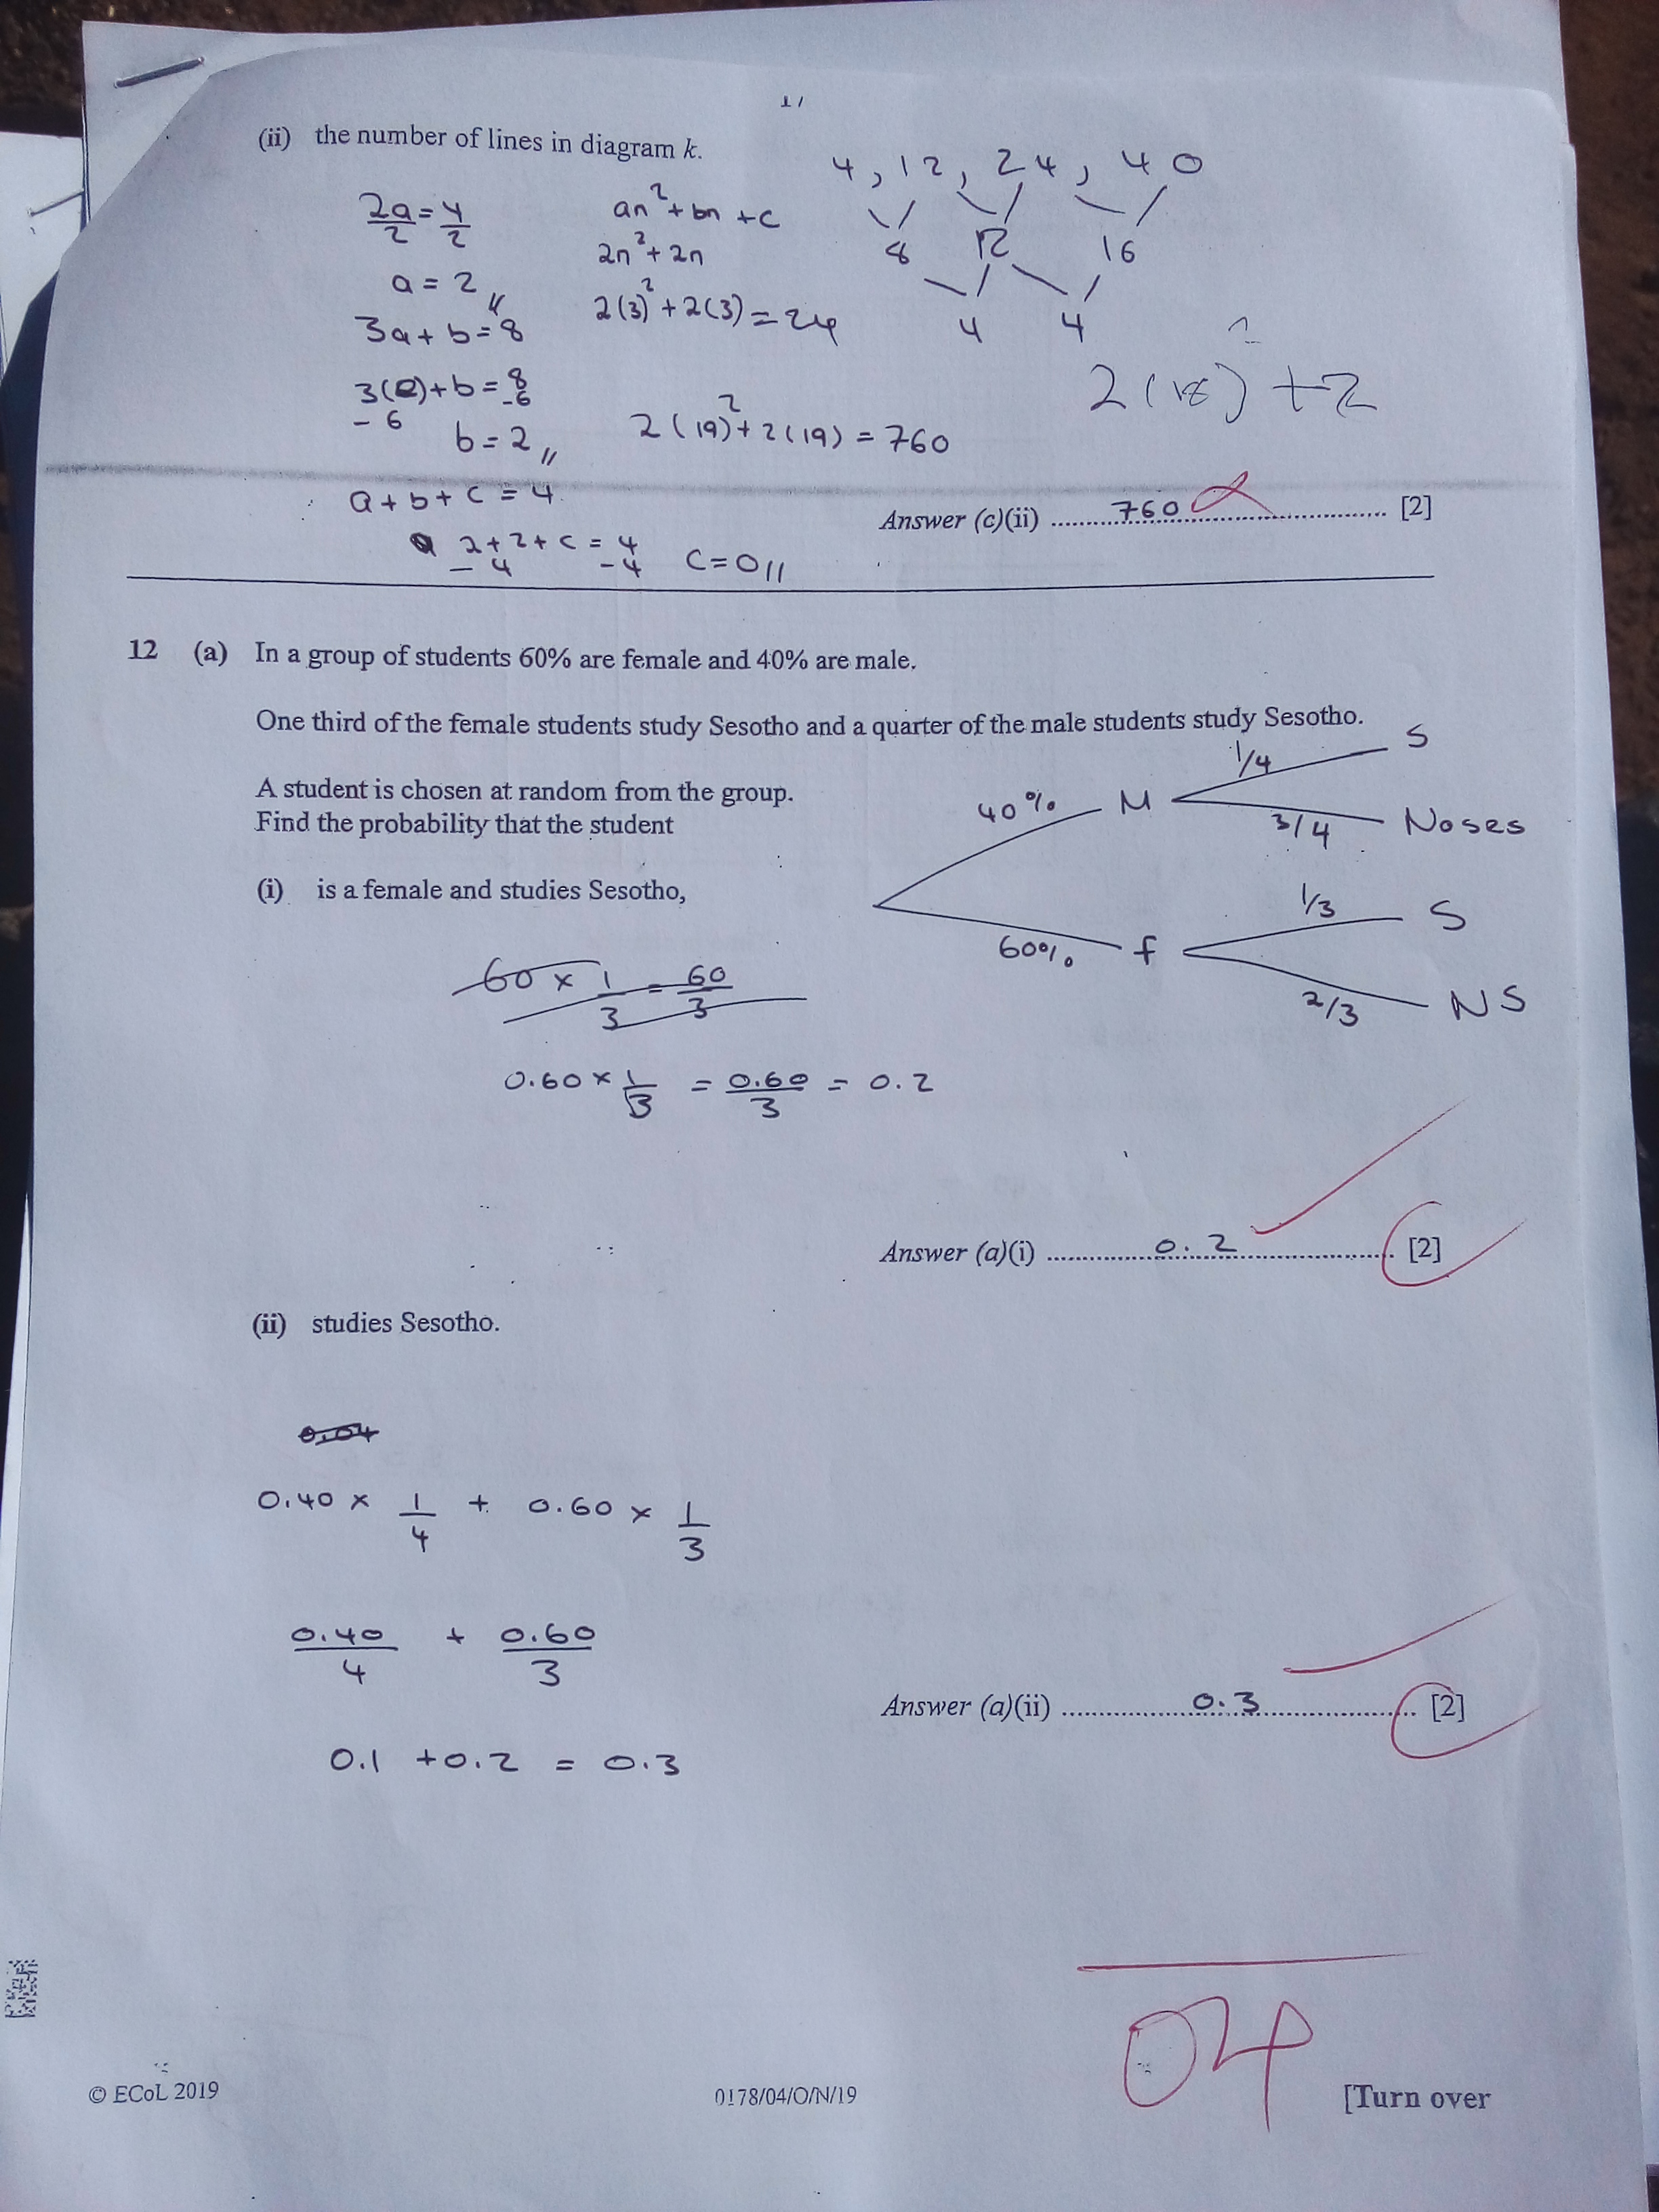 (ii) the number of lines in diagram k.
4, 12, 24, 40
8 12 16
4 4
2a/2 = 4/2
a = 2 //
3a + b = 8
3(2) + b = 8
- 6 -6
b = 2 //
a + b + c = 4
2 + 2 + c = 4
- 4 - 4
c = 0 //
an² + bn + c
2n² + 2n
2(3)² + 2(3) = 24
2(19)² + 2(19) = 760
2(18)² + 2
Answer (c)(ii) 760 [2]
12 (a) In a group of students 60% are female and 40% are male.
One third of the female students study Sesotho and a quarter of the male students study Sesotho.
A student is chosen at random from the group.
Find the probability that the student
40% M 1/4 S
3/4 Noses
60% f 1/3 S
2/3 NS
(i) is a female and studies Sesotho,
60 × 1/3 = 60/3
0.60 × 1/3 = 0.60/3 = 0.2
Answer (a)(i) 0.2 [2]
(ii) studies Sesotho.
0.04
0.40 × 1/4 + 0.60 × 1/3
0.40/4 + 0.60/3
0.1 + 0.2 = 0.3
Answer (a)(ii) 0.3 [2]
04
© ECoL 2019
0178/04/O/N/19
[Turn over